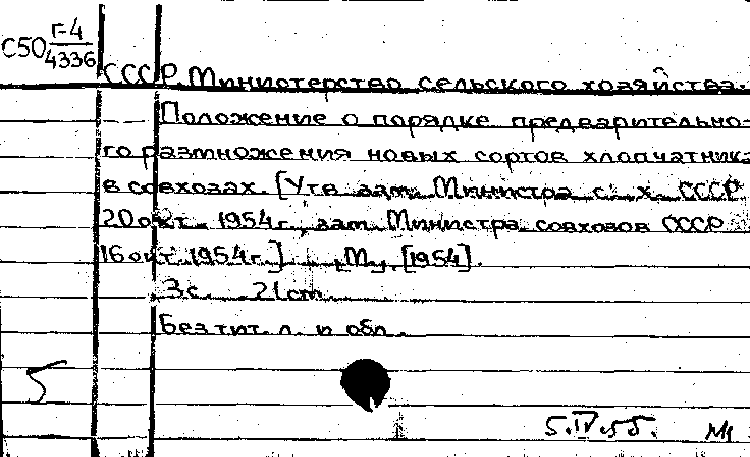 С50 Г-4
4336
СССР. Министерство сельского хозяйства.
Положение о порядке предварительно-
го размножения новых сортов хлопчатника
в совхозах. [Утв. зам. Министра с. х. СССР
20 окт. 1954 г., зам. Министра совхозов СССР
16 окт. 1954 г.] М., [1954].
3 с. 21 cm.
Без тит. л. и обл.
5
5.IV.55.